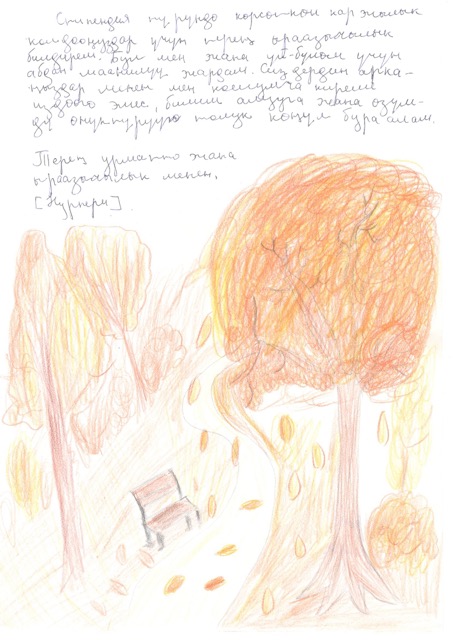 Стипендия түрүндө көрсөткөн каржылык
колдооңуздар үчүн терең ыраазычылык
билдирем. Бул мен жана үй-бүлөм үчүн
абдан маанилүү жардам. Сиздердин арка-
ңыздар менен мен кошумча киреше
издөөгө эмес, билим алууга жана өзүм-
дү өнүктүрүүгө толук көңүл бура алам.
Терең урматтоо жана
ыраазычылык менен,
[Нурпери].